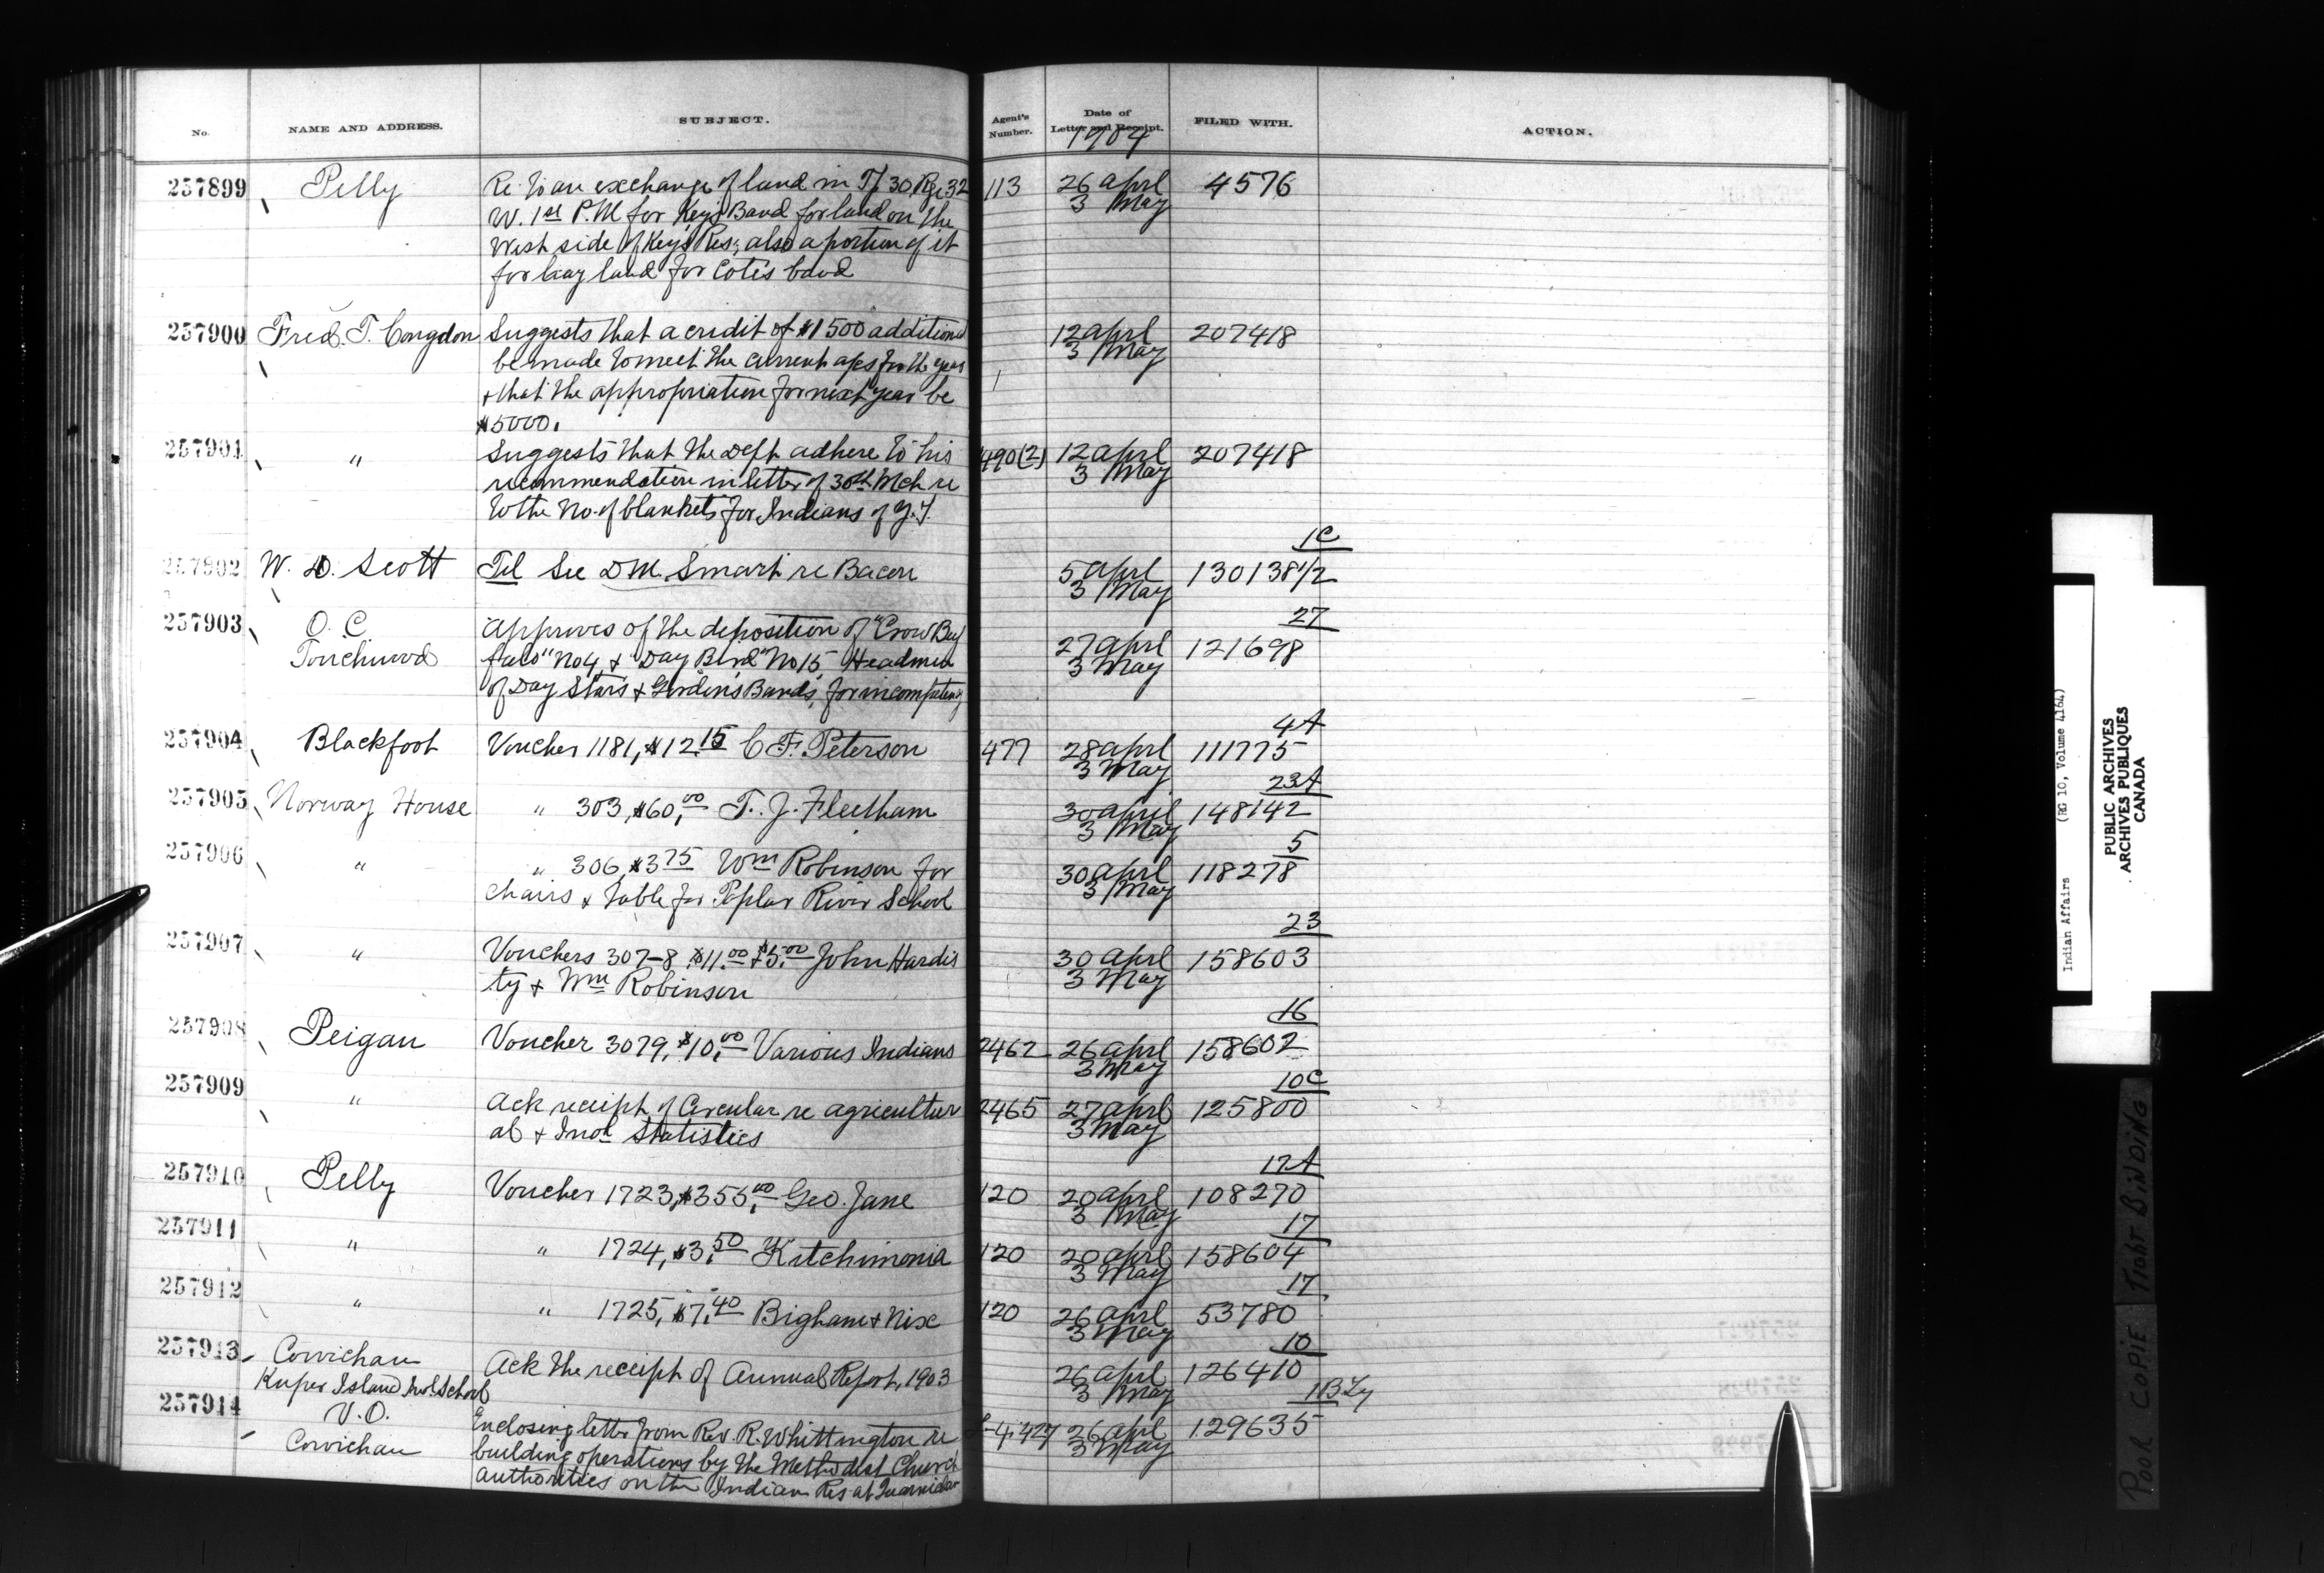 No. NAME AND ADDRESS. SUBJECT. Agent's Number. Date of Letter and Receipt. FILED WITH. ACTION.
1904
257899 Pelly Re to an exchange of land in Tp 30 Rge 32 113 26 aprl 4576
W. 1st P.M for Keys Band for land on the 3 May
West side of Keys Res; also a portion of it
for hay land for Cotes band
257900 Fred. T. Congdon Suggests that a credit of $1500 additional 12 aprl 207418
be made to meet the current a/cs for the year 3 May
& that the appropriation for next year be
$5000.
257901 " Suggests that the Dept adhere to his 490(2) 12 aprl 207418
recommendation in letter of 30th Mch re 3 May
to the No. of blankets for Indians of Y.T.
1C
257902 W. D. Scott Tel See DM. Smart re Bacon 5 aprl 130138 1/2
3 May
27
257903 O. C. Approves of the deposition of "Crow Buf 27 aprl 121698
Touchwood falo" No 4, & "Day Bird" No 15, Headmen 3 May
of Day Stars & Gordon's Bands, for incompetency
4A
257904 Blackfoot Voucher 1181, $12.15 C. F. Peterson 477 28 aprl 111775
3 May
23A
257905 Norway House " 303, $60.00 T. J. Fleetham 30 april 148142
3 May
5
257906 " " 306, $3.75 Wm Robinson for 30 aprl 118278
chairs & table for Poplar River School 3 May
23
257907 " Vouchers 307-8 $11.00 & $5.00 John Hardis 30 aprl 158603
ty & Wm Robinson 3 May
16
257908 Peigan Voucher 3079, $10.00 Various Indians 2462 26 aprl 158602
3 May
10C
257909 " Ack receipt of Circular re agricultur 2465 27 aprl 125800
al & Indl Statistics 3 May
17A
257910 Pelly Voucher 1723, $355.00 Geo. Jane 120 20 aprl 108270
3 May
17
257911 " " 1724, $3.50 Kitchimonia 120 20 aprl 158604
3 May
17
257912 " " 1725, $7.40 Bigham & Nix 120 26 aprl 53780
3 May
10
257913 Cowichan Ack the receipt of Annual Report, 1903 26 aprl 126410
Kuper Island Indl School 3 May
1B
257914 V. O. Enclosing letter from Rev. R. Whittington re 26 aprl 129635
Cowichan building operations by the Methodist Church 3 May
authorities on the Indian Res at
Indian Affairs (RG 10, Volume 4164)
PUBLIC ARCHIVES
ARCHIVES PUBLIQUES
CANADA
POOR COPIE TIGHT BINDING